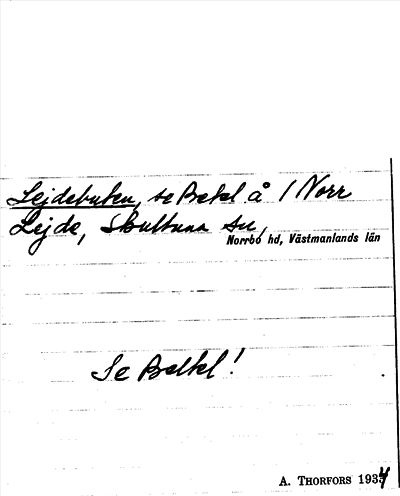 Lejdebuten, se Bstel å 1 Norr
Lejde, Skultuna sn,
Norrbo hd, Västmanlands län
Se
A. THORFORS 1934